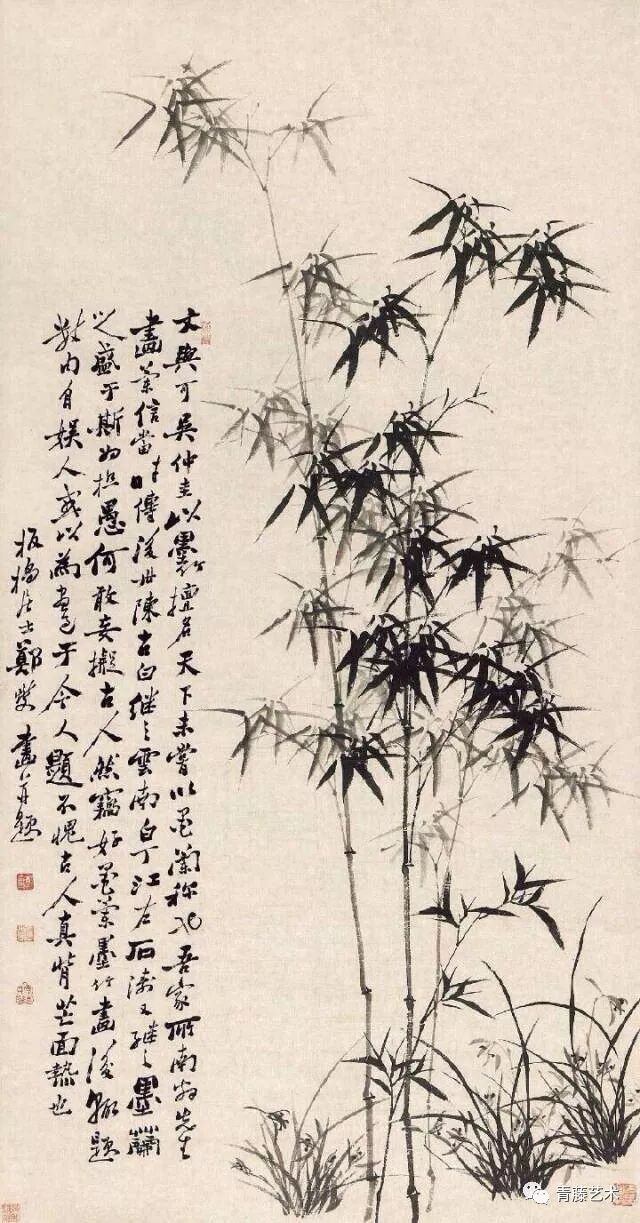 文與可吳仲圭以墨竹擅名天下未嘗以墨蘭稱也吾家所南翁先生
畫蘭信當時傳後世陳古白繼之雲南白丁江左石濤又繼之墨蘭
之盛于斯為極愚何敢妄擬古人然竊好墨蘭墨竹畫後輒題
數內自娛人或以為畫至于今人題不愧古人真背芒面熱也
板橋居士鄭燮畫并題
青藤艺术